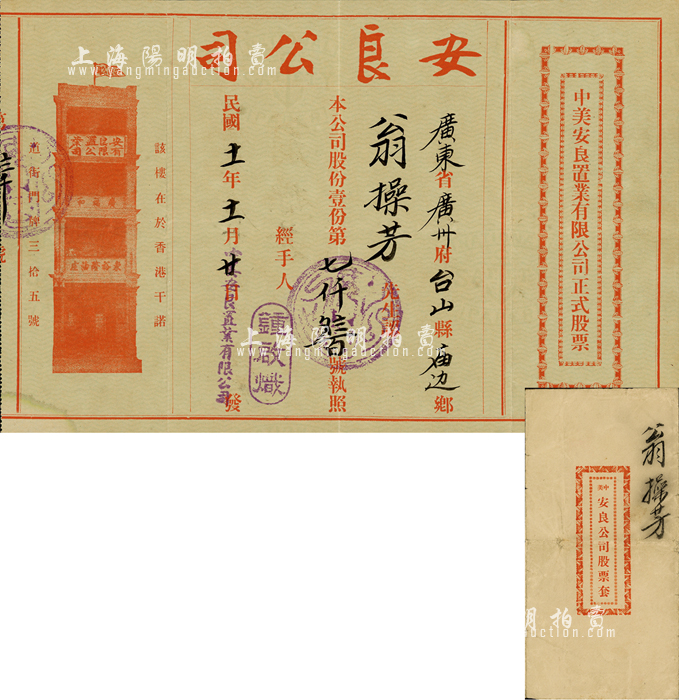 中美安良置業有限公司正式股票
安良公司
廣東省廣州府台山縣庙边鄉
翁操芳先生
本公司股份壹份第七仟號執照
經手人
鍾啟熾
民國十一年十一月廿日發
安良置業有限公司
該樓在於香港干諾
道街門牌三拾五號
安良置業有限公司
翁操芳
中美
安良公司股票套
上海陽明拍賣
www.yangmingauction.com
上海陽明拍賣
www.yangmingauction.com